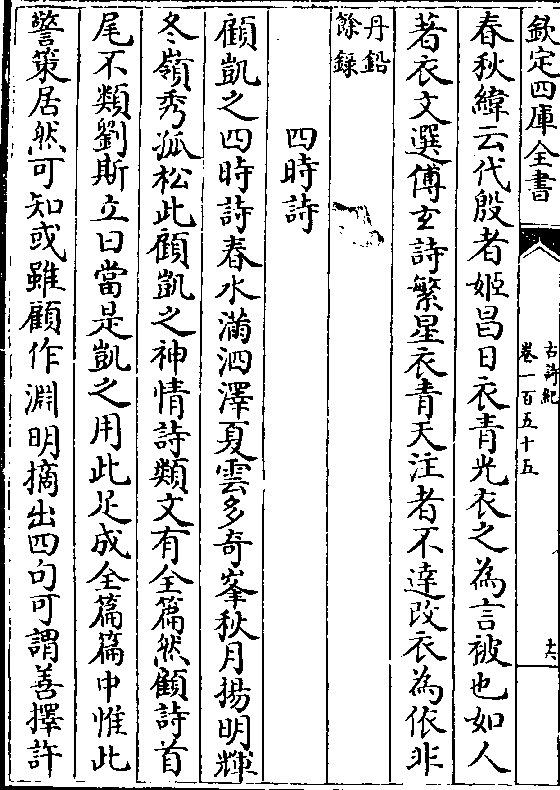 欽定四庫全書
古詩紀
卷一百五十五
十六
春秋緯云代殷者姬昌日衣青光衣之為言被也如人
著衣文選傅玄詩繁星衣青天注者不達改衣為依非
丹鉛
餘錄
四時詩
顧凱之四時詩春水滿泗澤夏雲多奇峯秋月揚明輝
冬嶺秀孤松此顧凱之神情詩類文有全篇然顧詩首
尾不類劉斯立曰當是凱之用此足成全篇篇中惟此
警策居然可知或雖顧作淵明摘出四句可謂善擇許